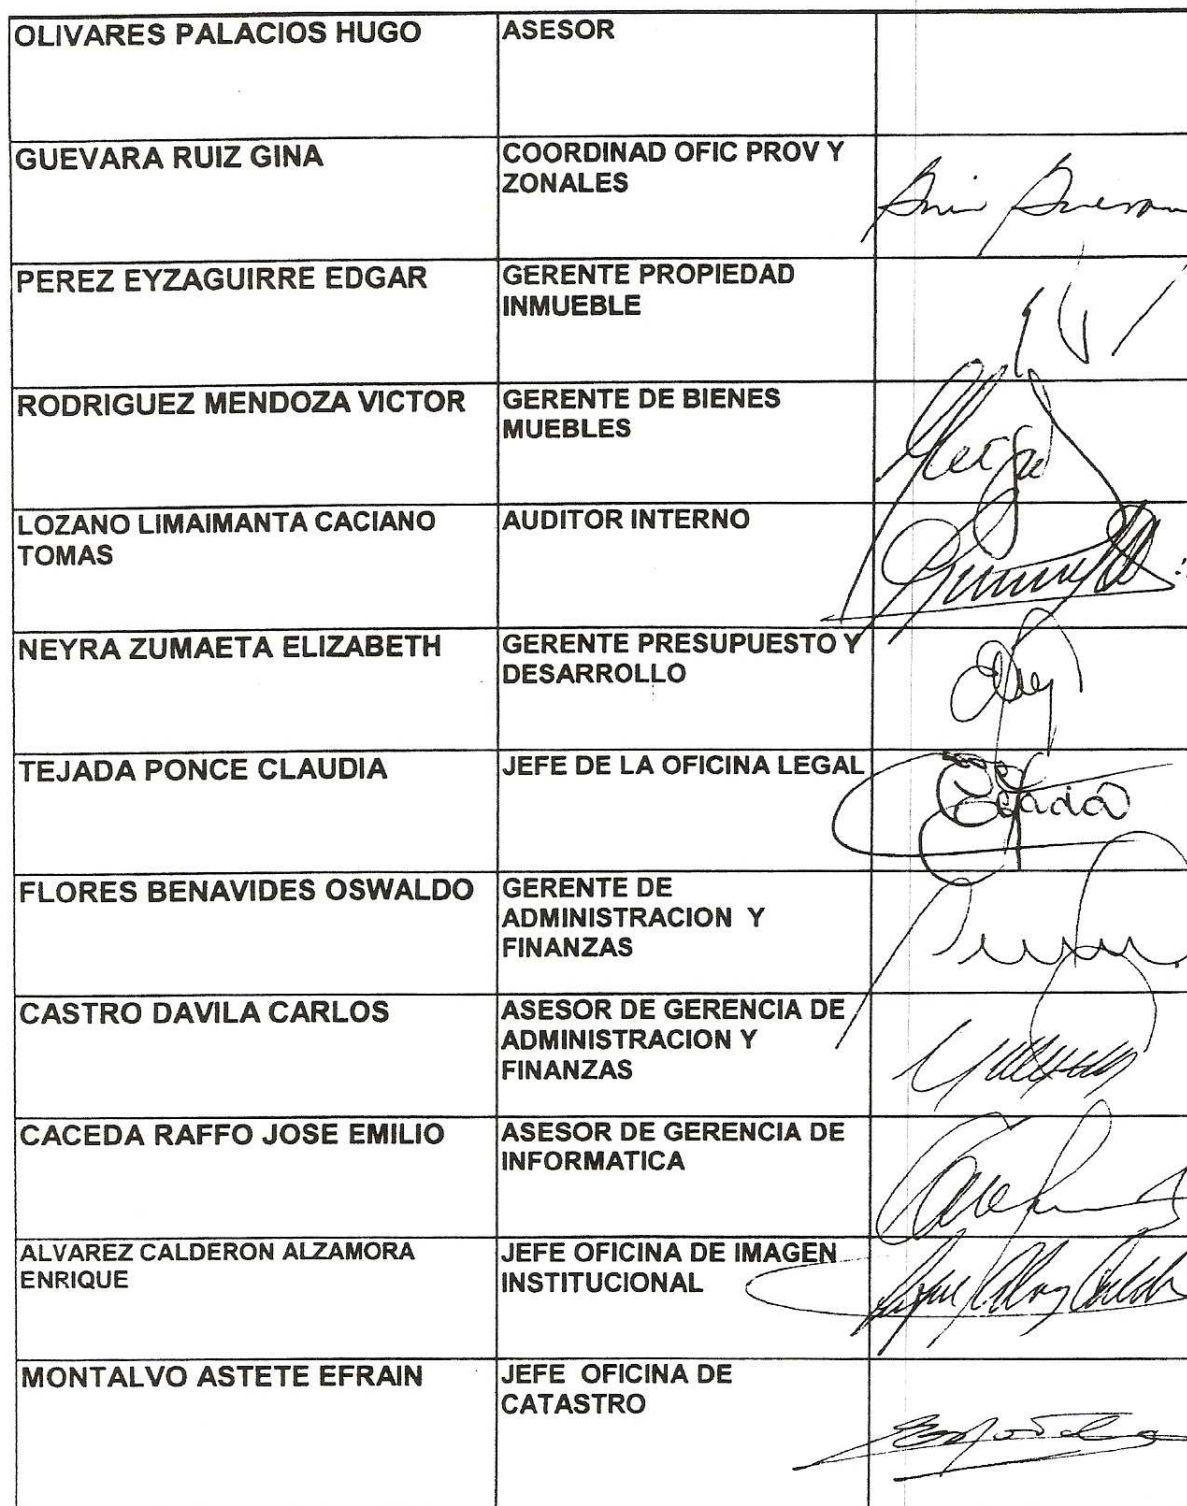 OLIVARES PALACIOS HUGO
ASESOR
GUEVARA RUIZ GINA
COORDINAD OFIC PROV Y
ZONALES
PEREZ EYZAGUIRRE EDGAR
GERENTE PROPIEDAD
INMUEBLE
RODRIGUEZ MENDOZA VICTOR
GERENTE DE BIENES
MUEBLES
LOZANO LIMAIMANTA CACIANO
TOMAS
AUDITOR INTERNO
NEYRA ZUMAETA ELIZABETH
GERENTE PRESUPUESTO Y
DESARROLLO
TEJADA PONCE CLAUDIA
JEFE DE LA OFICINA LEGAL
FLORES BENAVIDES OSWALDO
GERENTE DE
ADMINISTRACION Y
FINANZAS
CASTRO DAVILA CARLOS
ASESOR DE GERENCIA DE
ADMINISTRACION Y
FINANZAS
CACEDA RAFFO JOSE EMILIO
ASESOR DE GERENCIA DE
INFORMATICA
ALVAREZ CALDERON ALZAMORA
ENRIQUE
JEFE OFICINA DE IMAGEN
INSTITUCIONAL
MONTALVO ASTETE EFRAIN
JEFE OFICINA DE
CATASTRO